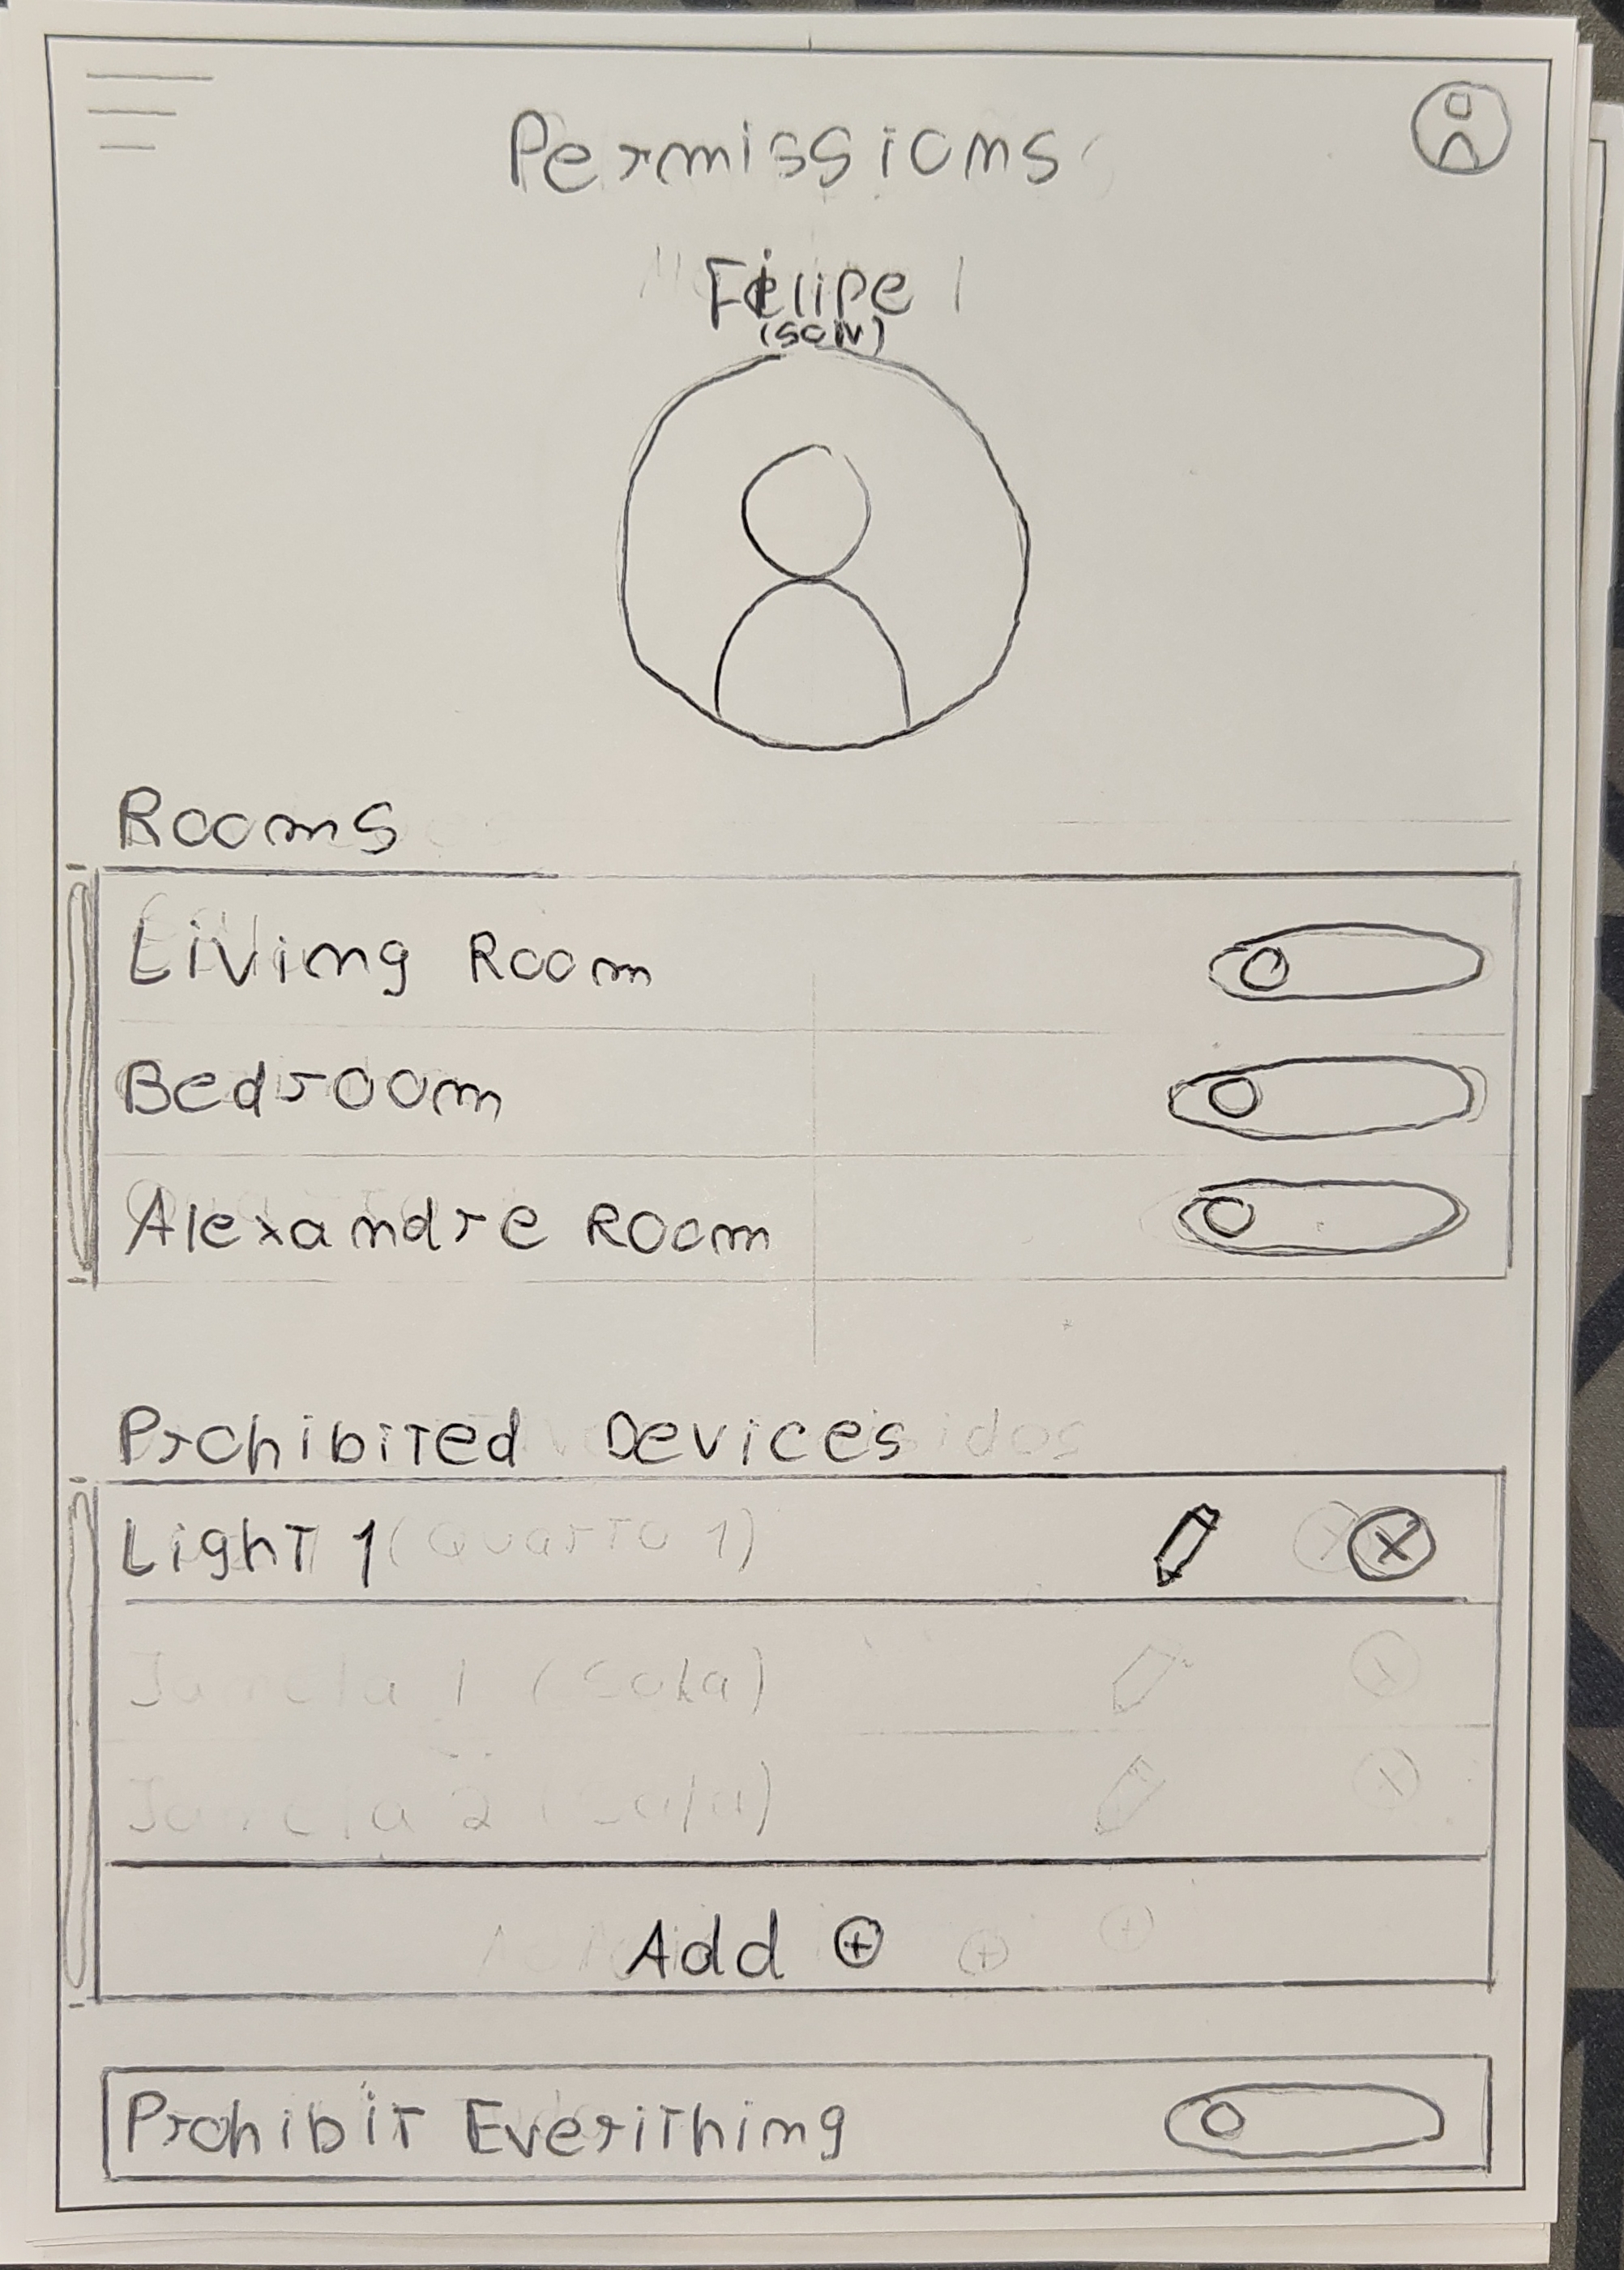 Permissions
Felipe
(SON)
Rooms
Living Room
Bedroom
Alexandre Room
Prohibited Devices
Light 1 (Quarto 1)
Janela 1 (Sala)
Janela 2 (Sala)
Add
Prohibit Everithing